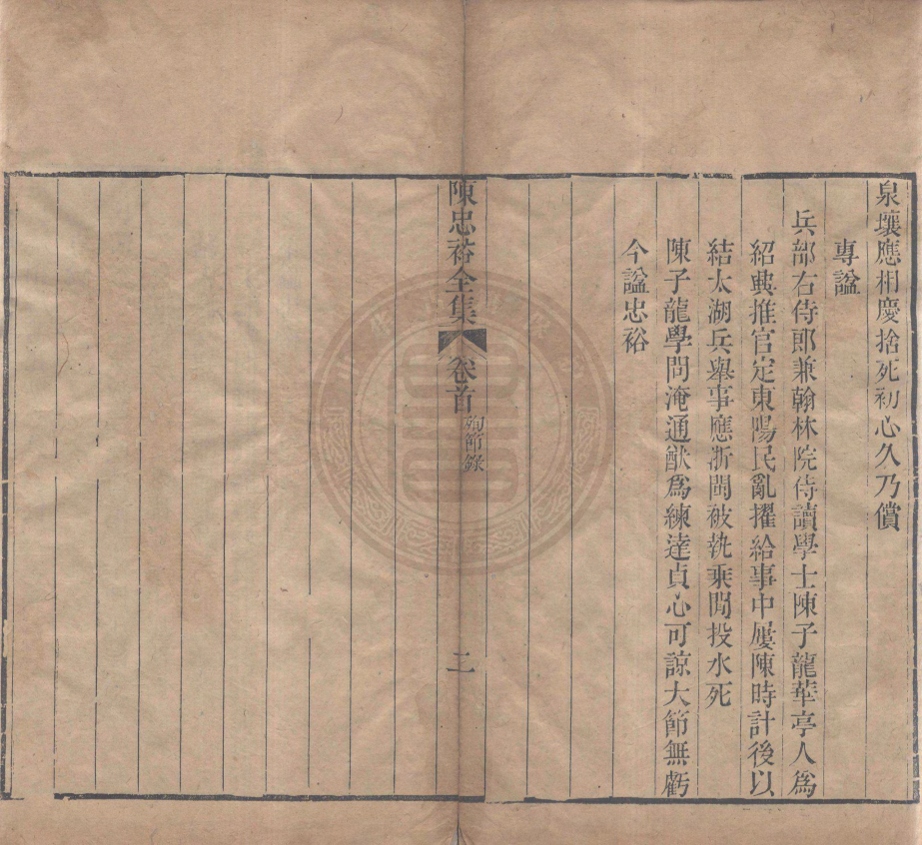 泉壤應相慶捨死初心久乃償
專諡
兵部右侍郎兼翰林院侍讀學士陳子龍華亭人爲
紹興推官定東陽民亂擢給事中屢陳時計後以
結太湖兵舉事應浙閩被執乘間投水死
陳子龍學問淹通猷爲練達貞心可諒大節無虧
今諡忠裕
陳忠裕全集
卷首
殉節錄
二